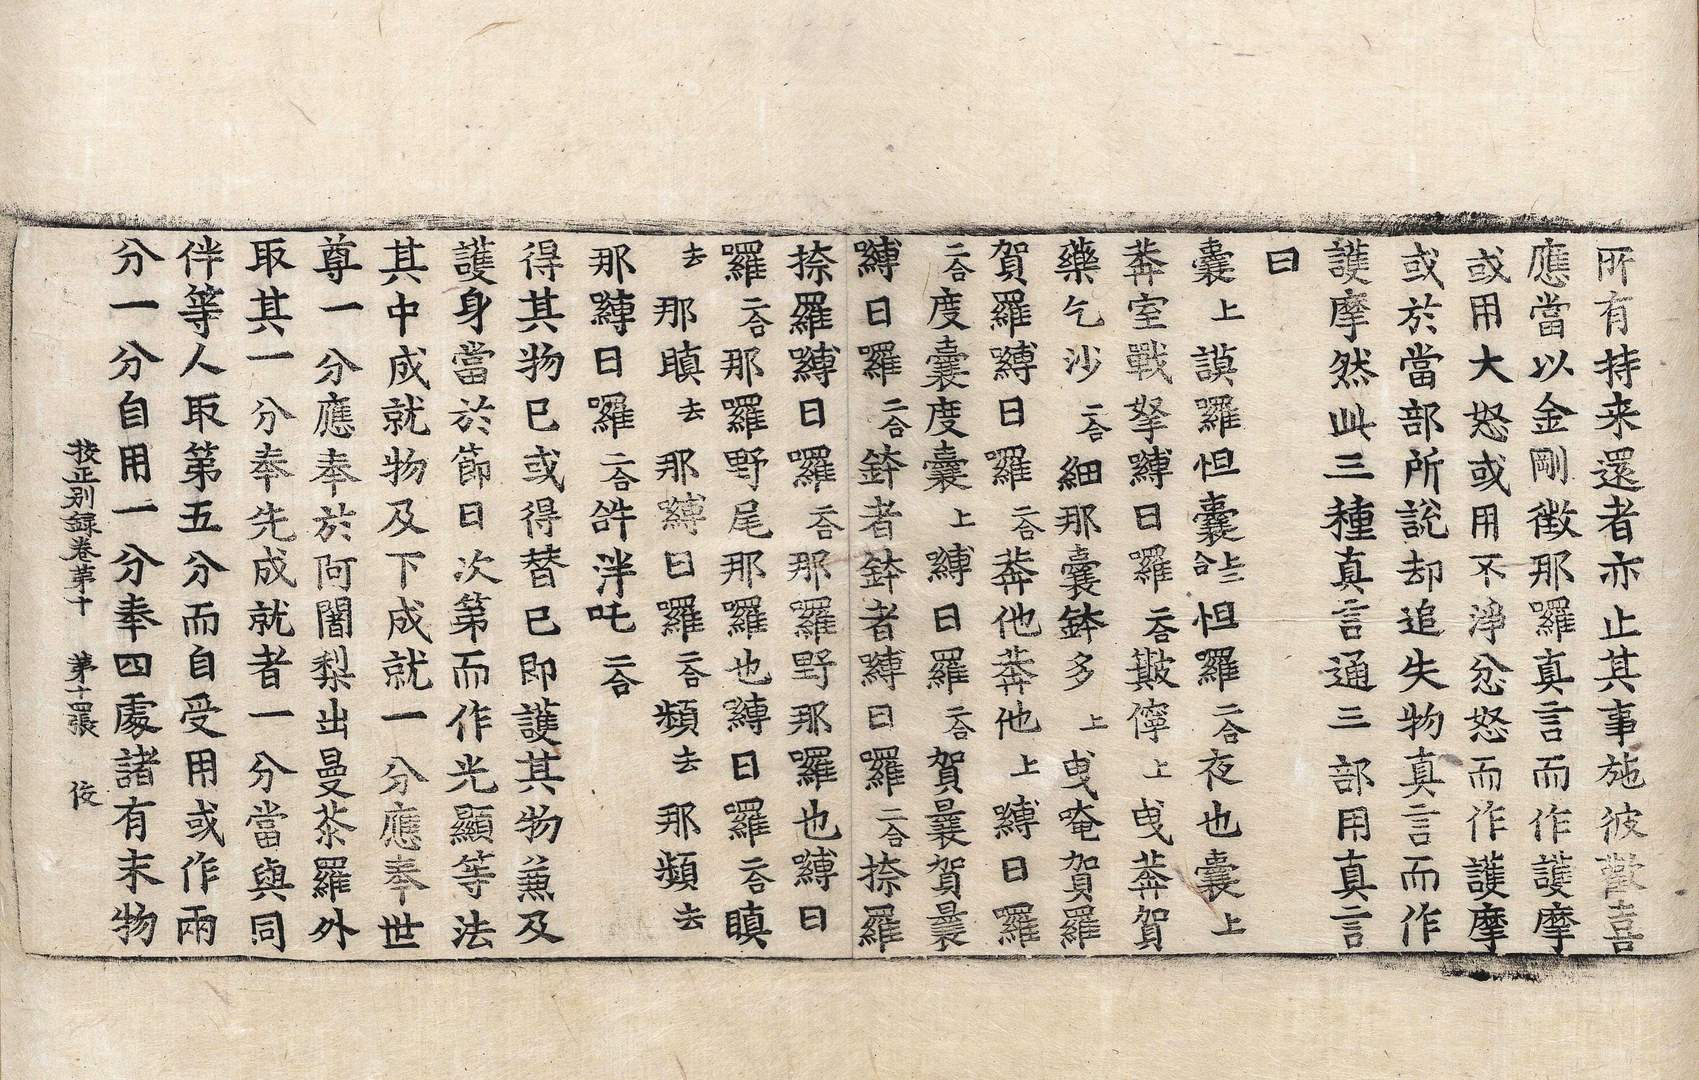 所有持来還者亦止其事施彼歡喜
應當以金剛徴那囉真言而作護摩
或用大怒或用不淨忿怒而作護摩
或於當部所說却追失物真言而作
護摩然此三種真言通三部用真言
曰
曩上謨羅怛曩二合上怛羅二合夜也曩上
莾室戰拏嚩日羅二合簸儜上曵莾賀
藥乞沙二合細那曩鉢多上曵唵賀羅
賀羅嚩日囉二合莾他莾他上嚩日羅
二合度曩度曩上嚩日羅二合賀曩賀曩
嚩日羅二合鉢者鉢者嚩日囉二合捺羅
捺羅嚩日囉二合那囉野那囉也嚩日
羅二合那羅野尾那囉也嚩日羅二合瞋
去那瞋去那嚩日囉二合頻去那頻去
那嚩日囉二合䤈泮吒二合
得其物已或得替已即護其物兼及
護身當於節日次第而作光顯等法
其中成就物及下成就一分應奉世
尊一分應奉於阿闍梨出曼荼羅外
取其一分奉先成就者一分當與同
伴等人取第五分而自受用或作兩
分一分自用一分奉四處諸有末物
校正別録卷第十　第十四張　佼